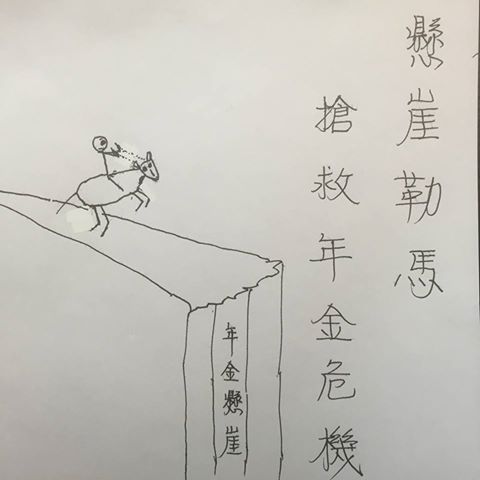 懸崖勒馬
搶救年金危機
年金懸崖